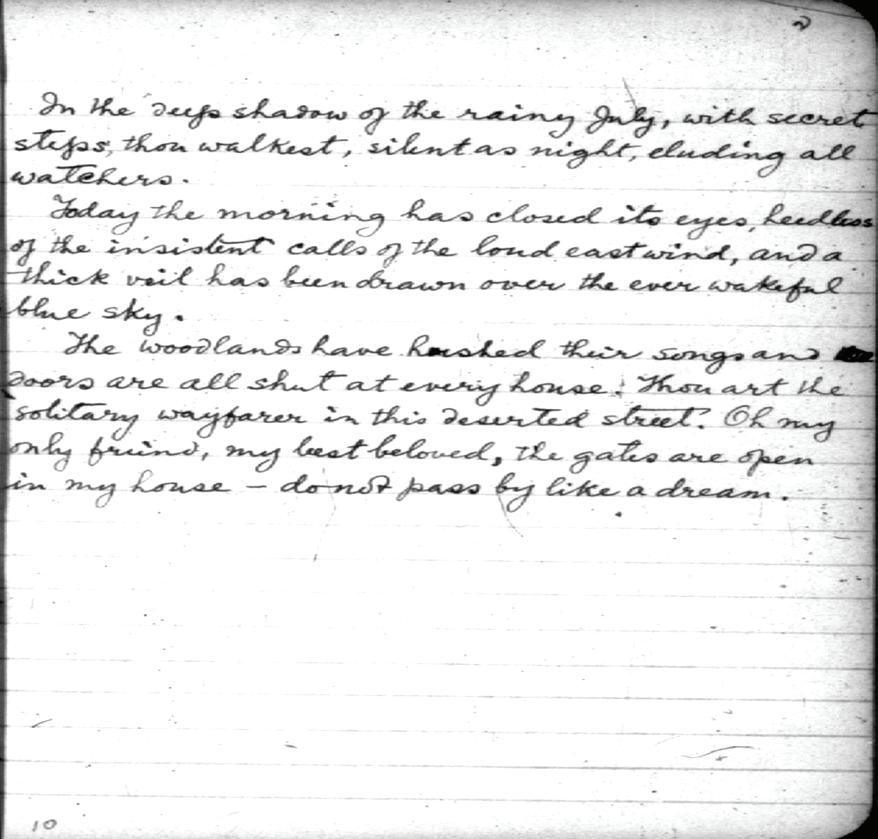 2
In the deep shadow of the rainy July, with secret
steps, thou walkest, silent as night, eluding all
watchers.
Today the morning has closed its eyes, heedless
of the insistent calls of the loud east wind, and a
thick veil has been drawn over the ever wakeful
blue sky.
The woodlands have hushed their songs and
doors are all shut at every house. Thou art the
solitary wayfarer in this deserted street. Oh my
only friend, my best beloved, the gates are open
in my house — do not pass by like a dream.
10